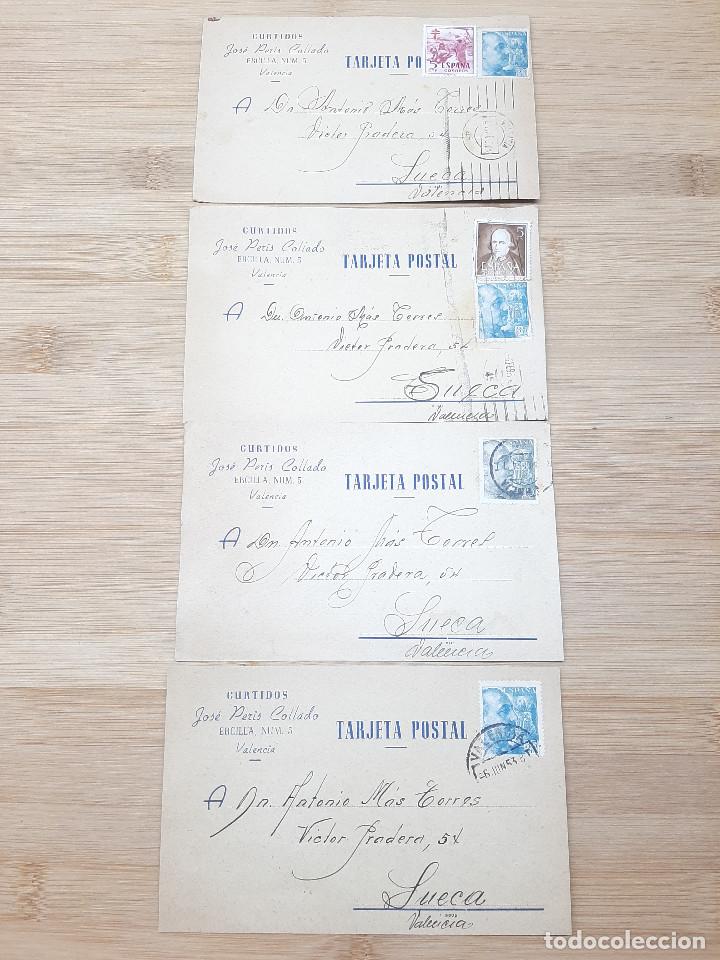 CURTIDOS
José Peris Collado
ERCILLA, NUM. 5
Valencia
TARJETA PO
5 ESPAÑA
CORREOS
A Dn Antonio Más Torres
Victor Pradera 54
Sueca
Valencia
CURTIDOS
José Peris Collado
ERCILLA, NUM. 5
Valencia
TARJETA POSTAL
5
ESPAÑA
A Dn. Antonio Más Torres
Victor Pradera, 54
Sueca
Valencia
CURTIDOS
José Peris Collado
ERCILLA, NUM. 5
Valencia
TARJETA POSTAL
A Dn Antonio Más Torres
Victor Pradera, 54
Sueca
Valencia
CURTIDOS
José Peris Collado
ERCILLA, NUM. 5
Valencia
TARJETA POSTAL
ESPAÑA
VALENCIA
-6.JUN53
A Dn. Antonio Más Torres
Victor Pradera, 54
Sueca
Valencia
todocoleccion.net